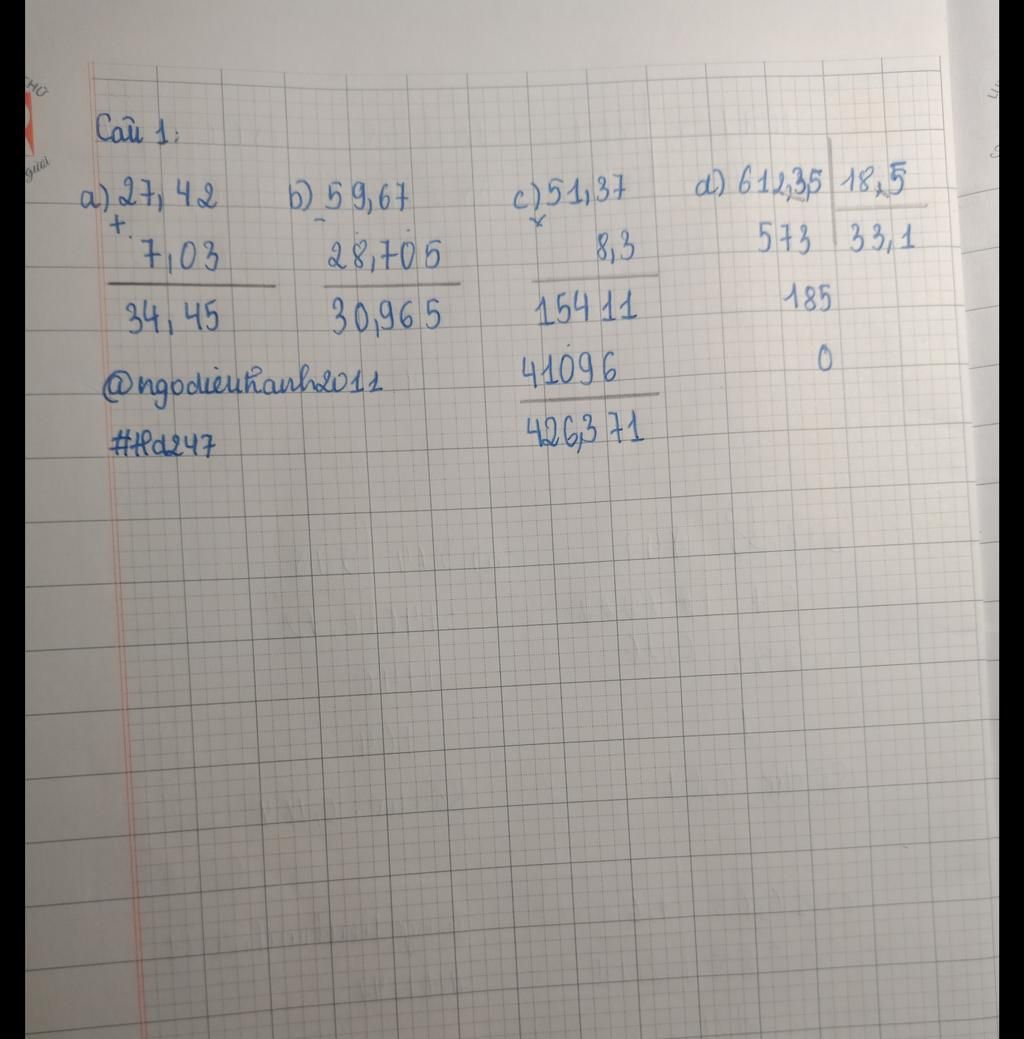 Câu 1:
a) 27,42
+
7,03
34,45
b) 59,67
-
28,705
30,965
c) 51,37
x
8,3
15411
41096
426,371
d) 612,3,5 18,5
573 33,1
185
0
@ngodieukanh2011
#Hd247